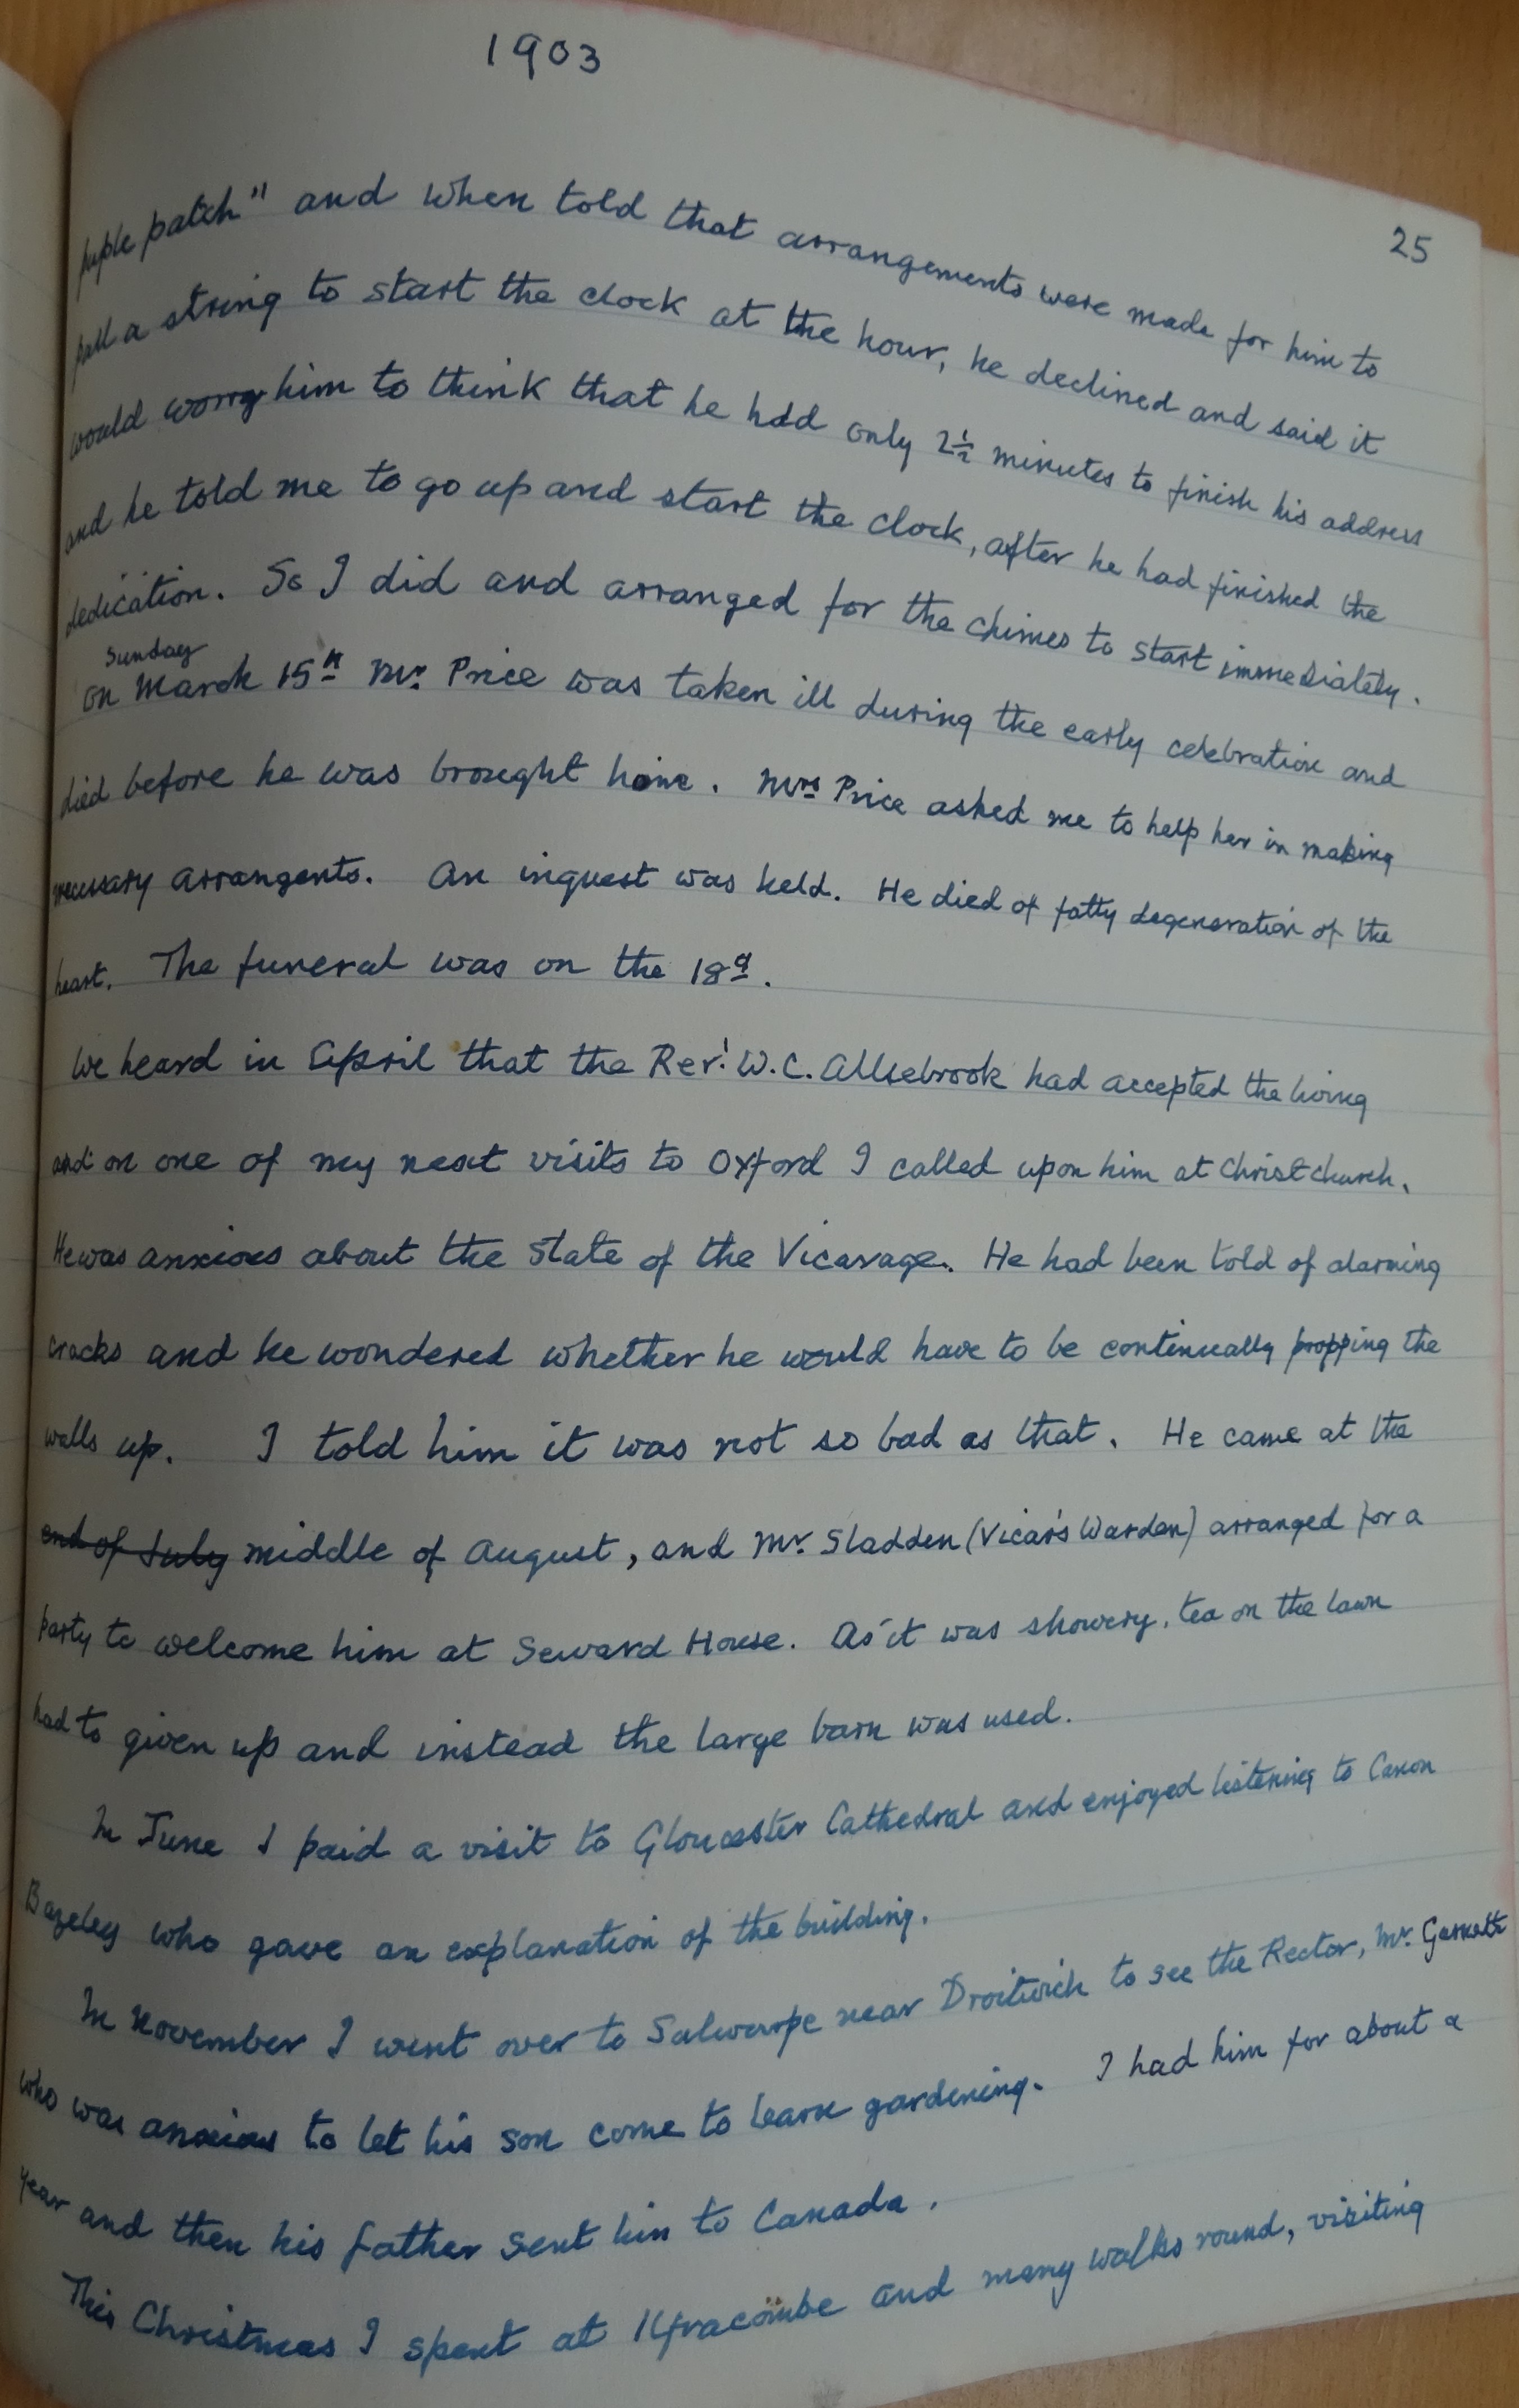 1903
25
puple patch" and when told that arrangements were made for him to
pull a string to start the clock at the hour, he declined and said it
would worry him to think that he had only 2½ minutes to finish his address
and he told me to go up and start the clock, after he had finished the
dedication. So I did and arranged for the chimes to start immediately.
Sunday
On March 15th Mr. Price was taken ill during the early celebration and
died before he was brought home. Mrs Price asked me to help her in making
necessary arrangents. An inquest was held. He died of fatty degeneration of the
heart. The funeral was on the 18th.
We heard in April that the Rev'. W.C. Allsebrook had accepted the living
and on one of my next visits to Oxford I called upon him at Christchurch.
He was anxious about the state of the Vicarage. He had been told of alarming
cracks and he wondered whether he would have to be continually propping the
walls up. I told him it was not so bad as that. He came at the
end of July middle of August, and Mr. Sladden (Vicar's Warden) arranged for a
party to welcome him at Seward House. As it was showery, tea on the lawn
had to given up and instead the large barn was used.
In June I paid a visit to Gloucester Cathedral and enjoyed listening to Canon
Bazeley who gave an explanation of the building.
In November I went over to Salwarpe near Droitwich to see the Rector, Mr.
who was anxious to let his son come to learn gardening. I had him for about a
year and then his father sent him to Canada.
This Christmas I spent at Ilfracombe and many walks round, visiting